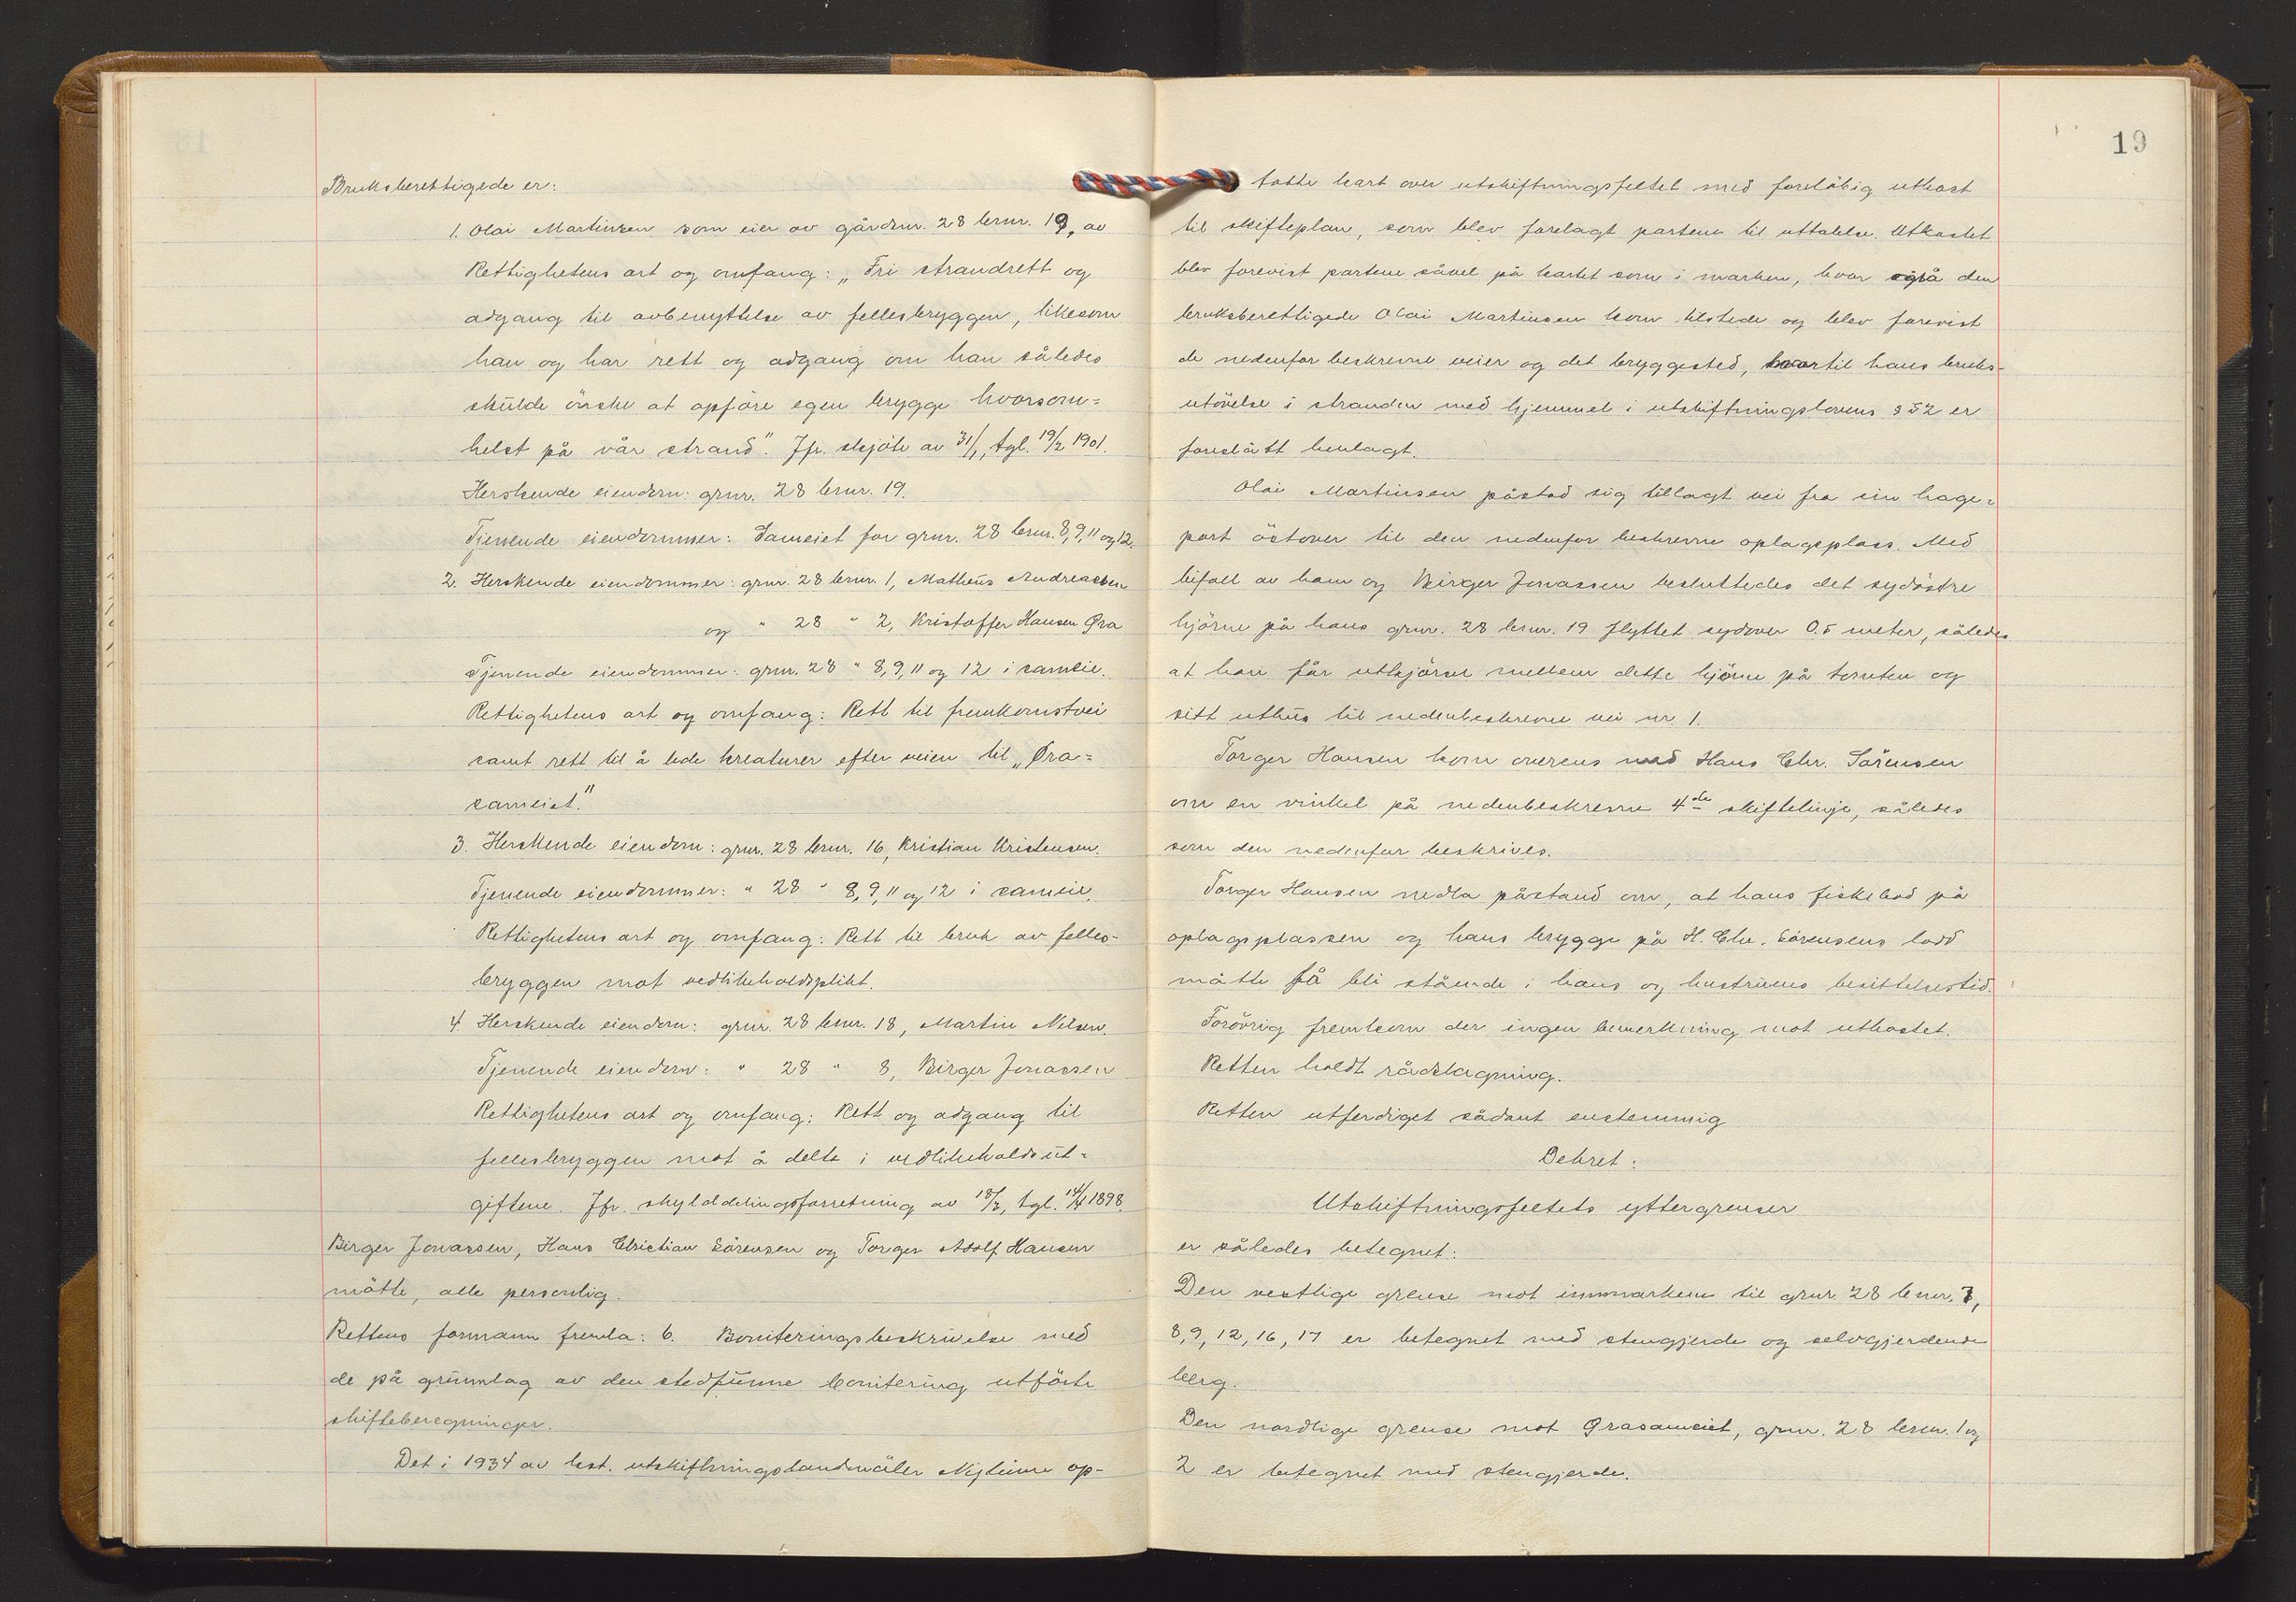 Bruksberettigede er:
1. Olai Martinsen som eier av gårdsnr. 28 brnr. 19, av
Rettighetens art og omfang: „Fri strandrett og
adgang til avbenyttelse av fellesbryggen, likesom
han og har rett og adgang om han således
skulde önske at opföre egen brygge hvorsom=
helst på vår strand". Jfr. skjöte av 31/1, tgl. 19/2 1901.
Herskende eiendom: grnr. 28 brnr. 19.
Tjenende eiendommer: Sameiet for grnr. 28 brnr. 8, 9, 11 og 12.
2. Herskende eiendommer: grnr. 28 brnr. 1, Matheus Andreassen
og " 28 " 2, Kristoffer Hansen Øra
Tjenende eiendommer: grnr. 28 " 8, 9, 11 og 12 i sameie.
Rettighetens art og omfang: Rett til fremkomstvei
samt rett til å lede kreaturer efter veien til „Øra=
sameiet."
3. Herskende eiendom: grnr. 28 brnr. 16, Kristian Kristensen.
Tjenende eiendommer: " 28 " 8, 9, 11 og 12 i sameie.
Rettighetens art og omfang: Rett til bruk av felles-
bryggen mot vedlikeholdsplikt.
4. Herskende eiendom: grnr. 28 brnr. 18, Martin Nilsen.
Tjenende eiendom: " 28 " 8, Birger Jonassen
Rettighetens art og omfang: Rett og adgang til
fellesbryggen mot å delta i vedlikeholdsut=
giftene. Jfr. skylddelingsforretning av 18/3, tgl. 14/4 1898.
Birger Jonassen, Hans Christian Sörensen og Torger Adolf Hansen
mötte, alle personlig.
Rettens formann fremla: 6. Boniteringsbeskrivelse med
de på grunnlag av den stedfunne bonitering utförte
skifteberegninger.
Det i 1934 av best. utskiftningslandmåler op-
19
tatte kart over utskiftningsfeltet med forelöbig utkast
til skifteplan, som blev forelagt partene til uttalelse. Utkastet
blev forevist partene såvel på kartet som i marken, hvor også den
bruksberettigede Olai Martinsen kom tilstede og blev forevist
de nedenfor beskrevne veier og det bryggested, hvortil hans bruks-
utövelse i stranden med hjemmel i utskiftningslovens § 52 er
foreslått henlagt.
Olai Martinsen påstod sig tillagt vei fra sin hage=
port östover til den nedenfor beskrevne oplagsplass. Med
bifall av ham og Birger Jonassen besluttedes det sydöstre
hjörne på hans grnr. 28 brnr. 19 flyttet sydover 0.5 meter, således
at han får utkjörsel mellem dette hjörne på tomten og
sitt uthus til nedenbeskrevne vei nr. 1.
Torger Hansen kom overens med Hans Chr. Sörensen
om en vinkel på nedenbeskrevne 4de skiftelinje, således
som den nedenfor beskrives.
Torger Hansen nedla påstand om, at hans fiskebod på
oplagsplassen og hans brygge på H. Chr. Sörensens lodd
måtte få bli stående i hans og hustruens besittelsestid.
Forövrig fremkom der ingen bemerkning mot utkastet.
Retten holdt rådslagning.
Retten utferdiget sådant enstemmig
Dekret:
Utskiftningsfeltets yttergrenser
er således betegnet:
Den vestlige grense mot innmarken til grnr. 28 brnr. 7,
8, 9, 12, 16, 17 er betegnet med stengjerde og selvgjerdende
berg.
Den nordlige grense mot Ørasameiet, grnr. 28 brnr. 1 og
2 er betegnet med stengjerde.